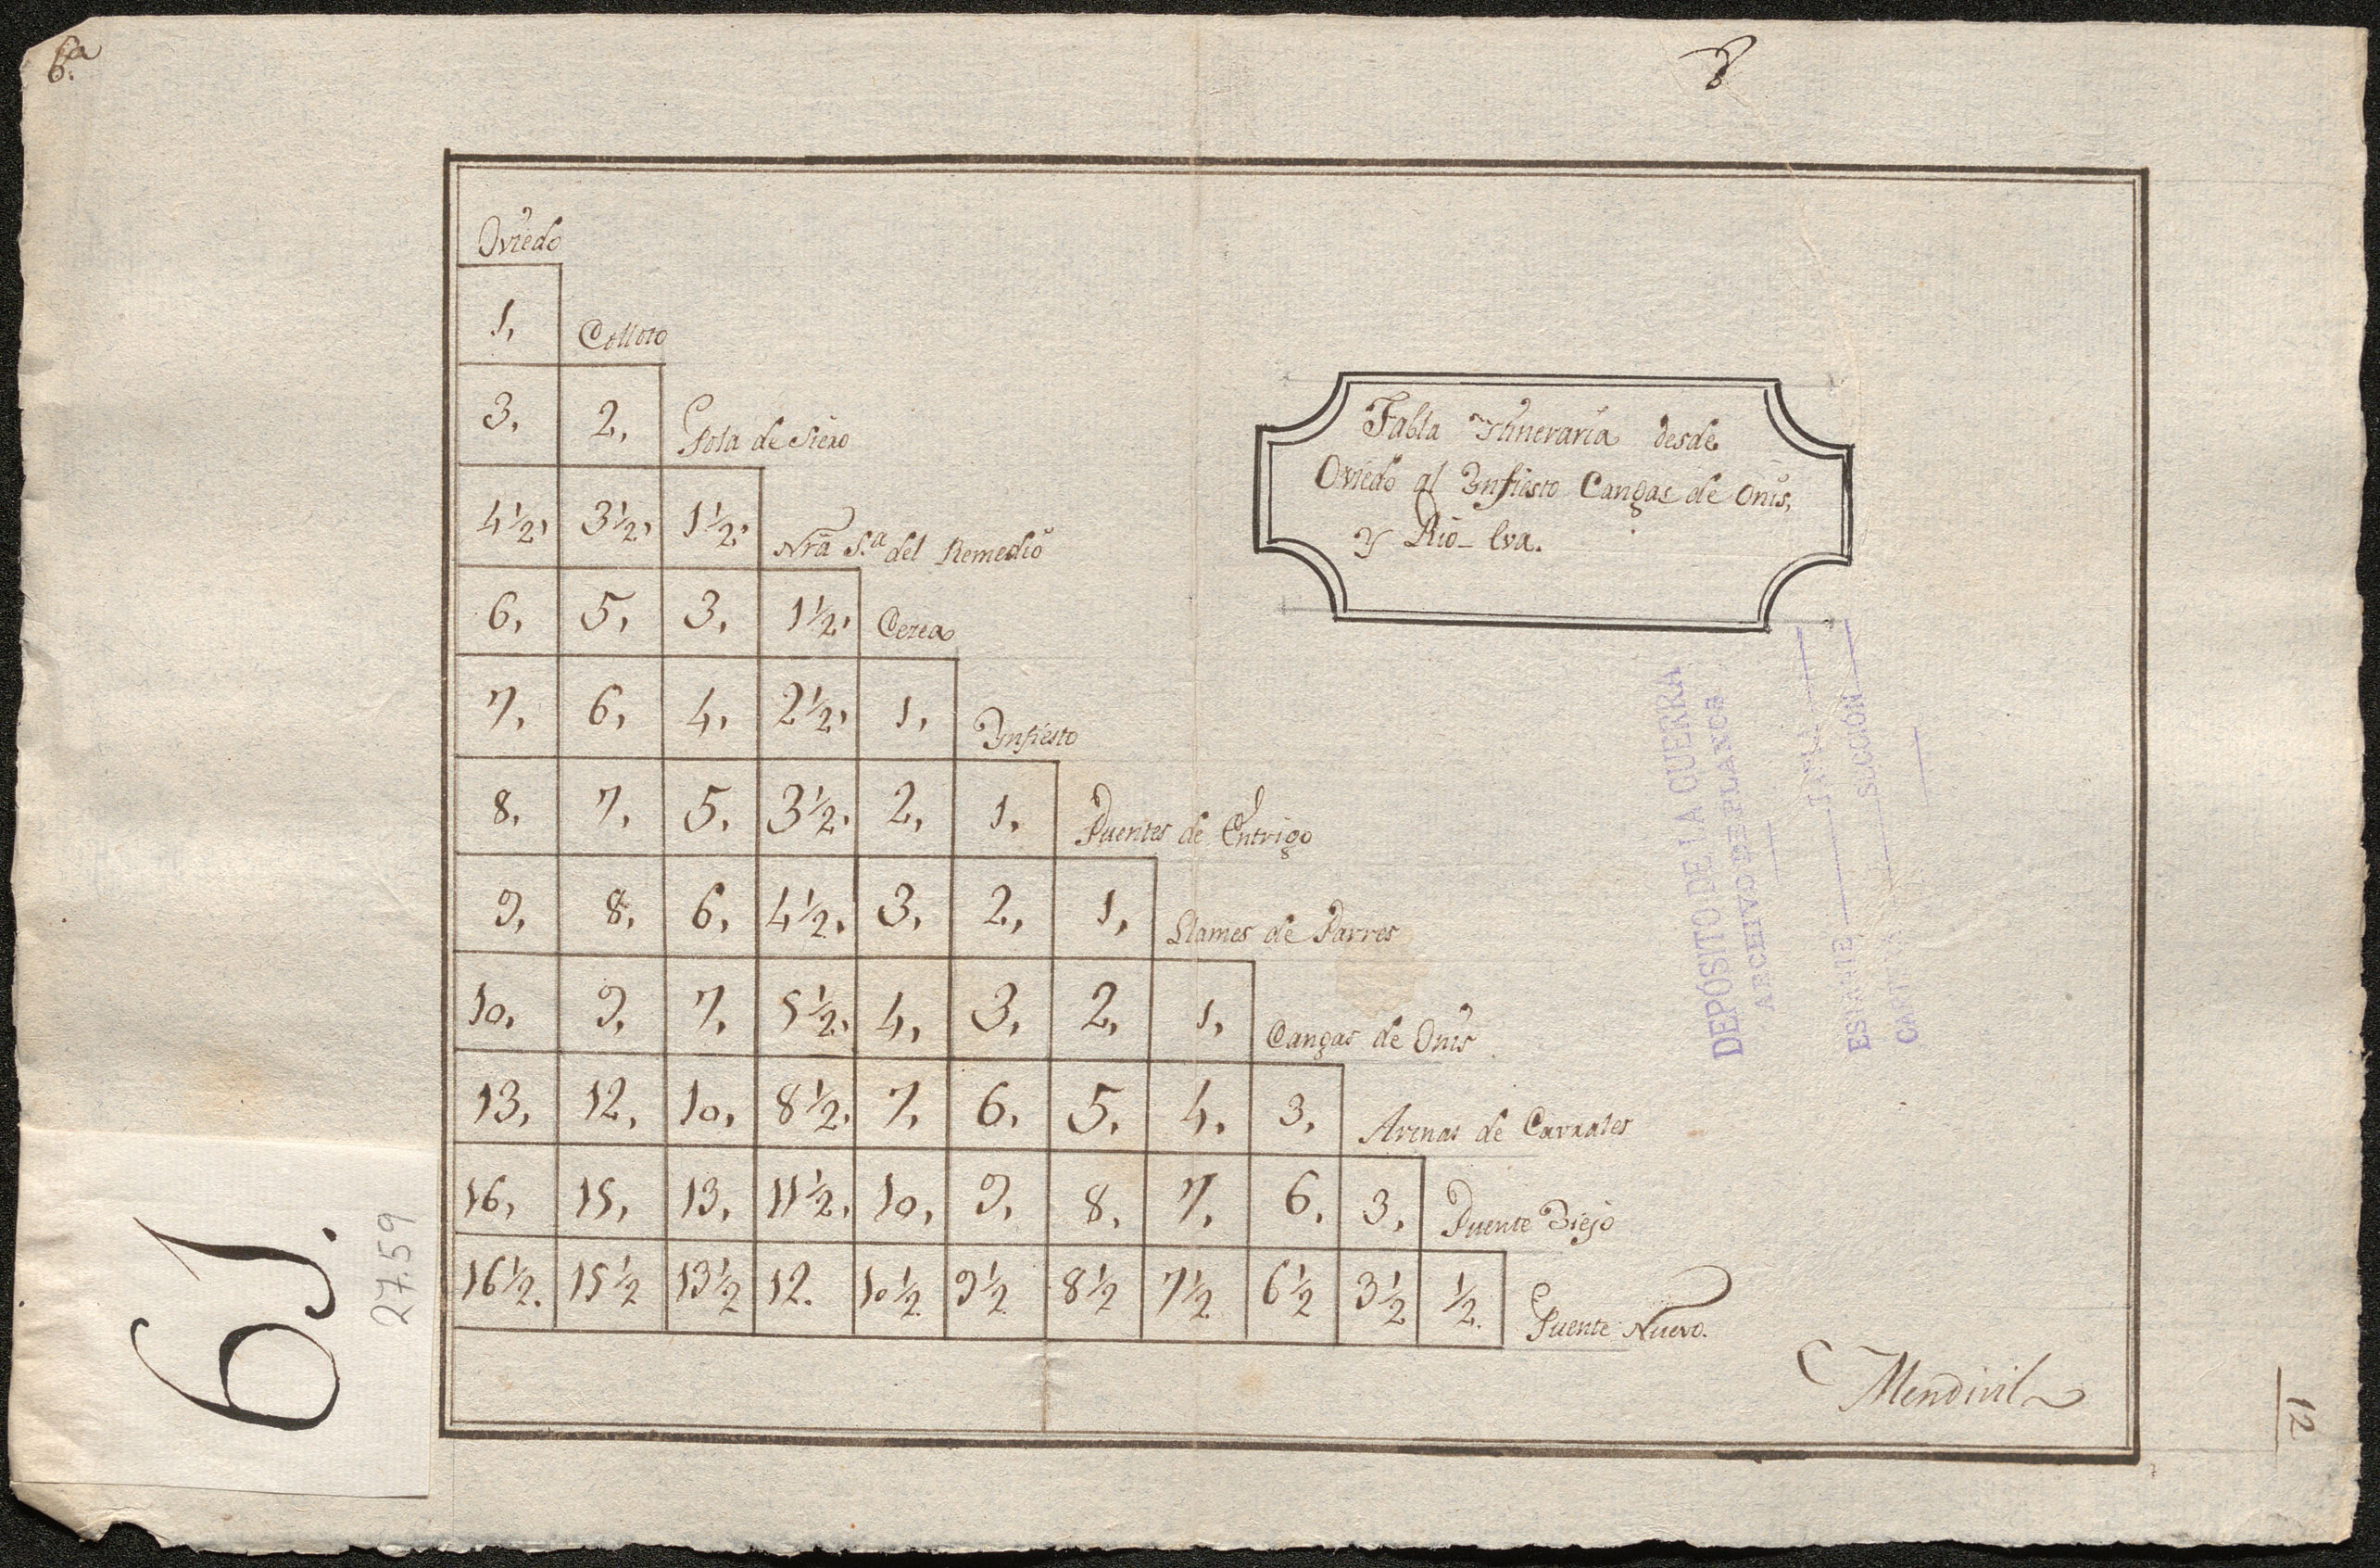 6.ª
Oviedo
1, Colloto
3, 2, Pola de Siero
4 1/2, 3 1/2, 1 1/2, Nrã S.ª del Remedio
6, 5, 3, 1 1/2, Cerea
7, 6, 4, 2 1/2, 1, Ynfiesto
8, 7, 5, 3 1/2, 2, 1, Puentes de Entrigo
9, 8, 6, 4 1/2, 3, 2, 1, Llames de Parres
10, 9, 7, 5 1/2, 4, 3, 2, 1, Cangas de Onis
13, 12, 10, 8 1/2, 7, 6, 5, 4, 3, Arenas de Carrales
16, 15, 13, 11 1/2, 10, 9, 8, 7, 6, 3, Puente Biejo
16 1/2. 15 1/2 13 1/2 12. 10 1/2 9 1/2 8 1/2 7 1/2 6 1/2 3 1/2 1/2. Puente Nuevo.
Tabla Ytineraria desde
Oviedo al Ynfiesto Cangas de Onis,
y Rio- Eva.
DEPÓSITO DE LA GUERRA
ARCHIVO DE PLANOS
ESTANTE
SECCIÓN
Mendivil
61.
27.59
12